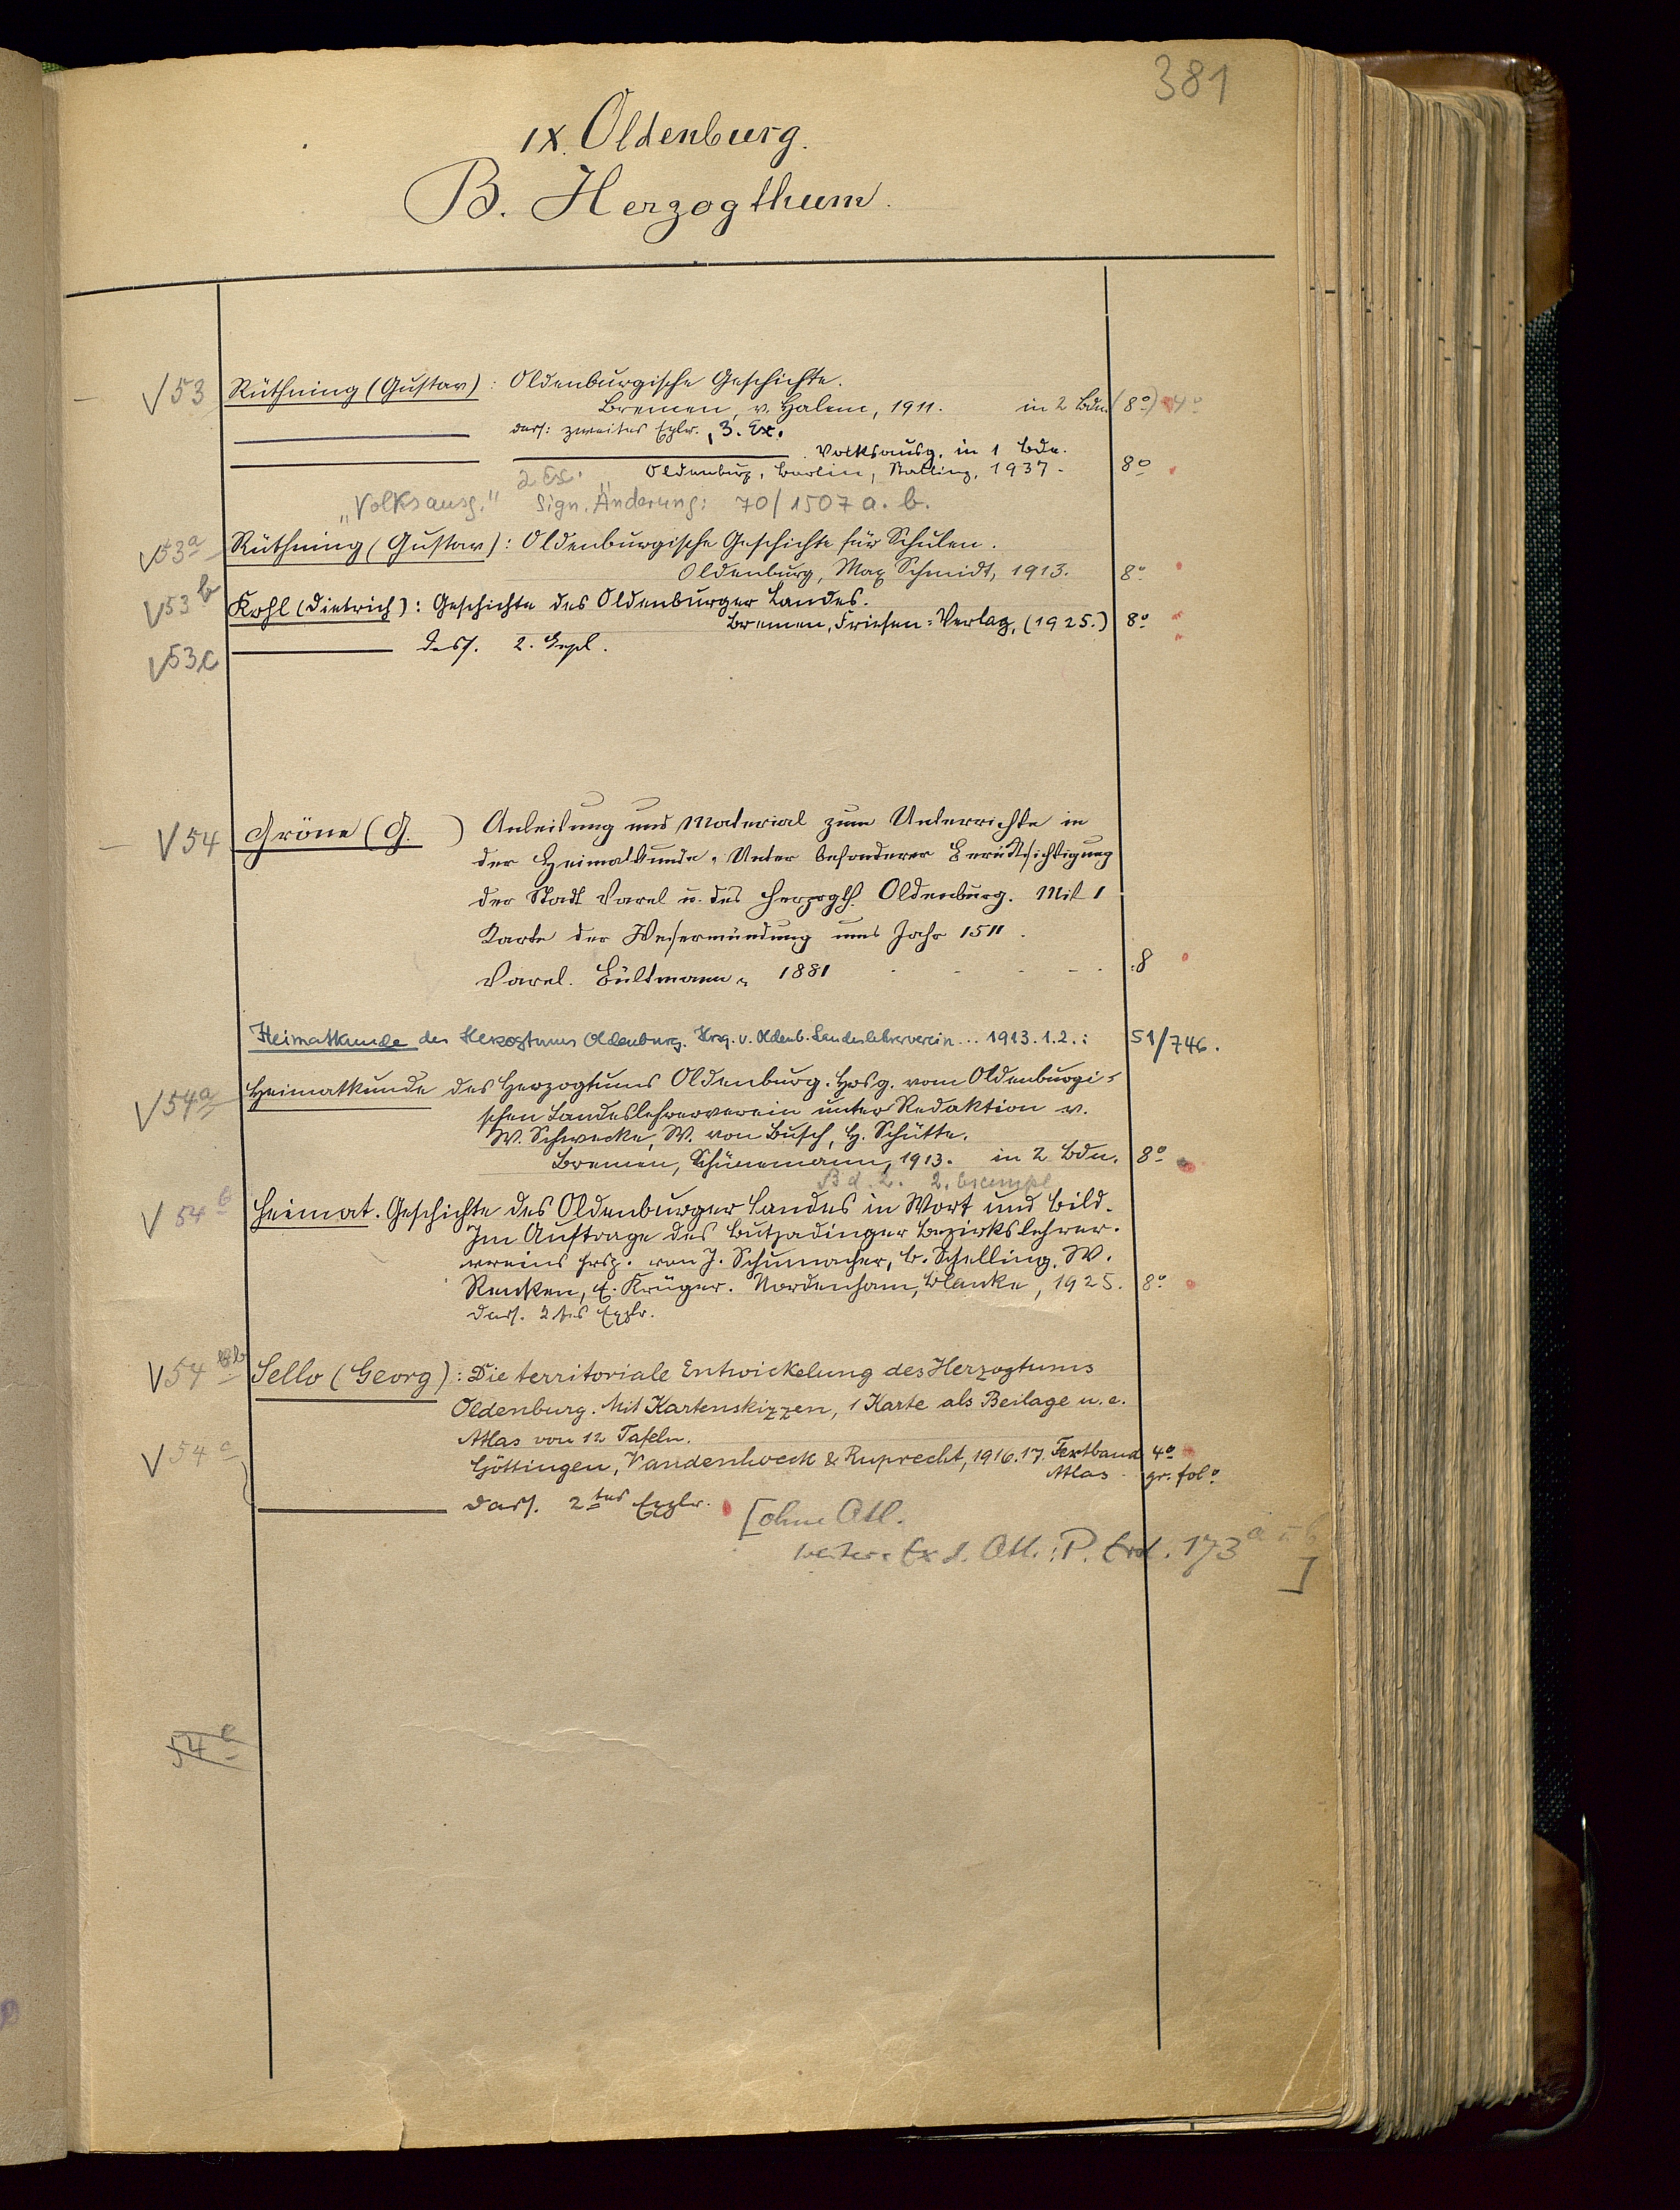 381
IX. Oldenburg.
B. Herzogthum.
√ 53 Rüthning (Gustav): Oldenburgische Geschichte.
Bremen, v. Halem, 1911. in 2 Bdn. (8°) 4°
dass: zweites Explr., 3. Ex.
Volksausg. in 1 Bde.
2 Ex. Oldenburg, Berlin, Stalling, 1937. 8°
"Volksausg." Sign. Änderung: 70/1507 a. b.
√ 53a Rüthning (Gustav): Oldenburgische Geschichte für Schulen.
Oldenburg, Max Schmidt, 1913. 8°
√ 53b Kohl (Dietrich): Geschichte des Oldenburger Landes.
Bremen, Friesen-Verlag, (1925.) 8°
√ 53c dass. 2. Expl.
√ 54 Gröne (G. ) Anleitung und Material zum Unterrichte in
der Heimatkunde. Unter besonderer Berücksichtigung
der Stadt Varel u. des Herzogth. Oldenburg. Mit 1
Karte der Wesermündung ums Jahr 1511.
Varel. Bültmann, 1881 8
Heimatkunde des Herzogtums Oldenburg. Hrsg. v. Oldenb. Landeslehrerverein... 1913. 1.2.: 51/746.
√ 54a Heimatkunde des Herzogtums Oldenburg. Hrsg. vom Oldenburgi-
schen Landeslehrerverein unter Redaktion v.
W. Schwecke, W. von Busch, H. Schütte.
Bremen, Schünemann, 1913. in 2 Bdn. 8°
Bd. 2. 2. Exempl
√ 54b Heimat. Geschichte des Oldenburger Landes in Wort und Bild.
Im Auftrage des Butjadinger Bezirkslehrer-
vereins hrsg. von J. Schumacher, E. Schelling, W.
Renken, E. Krüger. Nordenham, Blanke, 1925. 8°
dass. 2tes Explr.
√ 54 bb Sello (Georg): Die territoriale Entwickelung des Herzogtums
Oldenburg. Mit Kartenskizzen, 1 Karte als Beilage u. e.
Atlas von 12 Tafeln.
√ 54c Göttingen, Vandenhoeck & Ruprecht, 1916.17. Textband 4°
Atlas gr. fol°
dass. 2tes Explr. [ohne Atl.
weiter. Ex d. Atl.: P. Erd. 173 a u b
]
54e